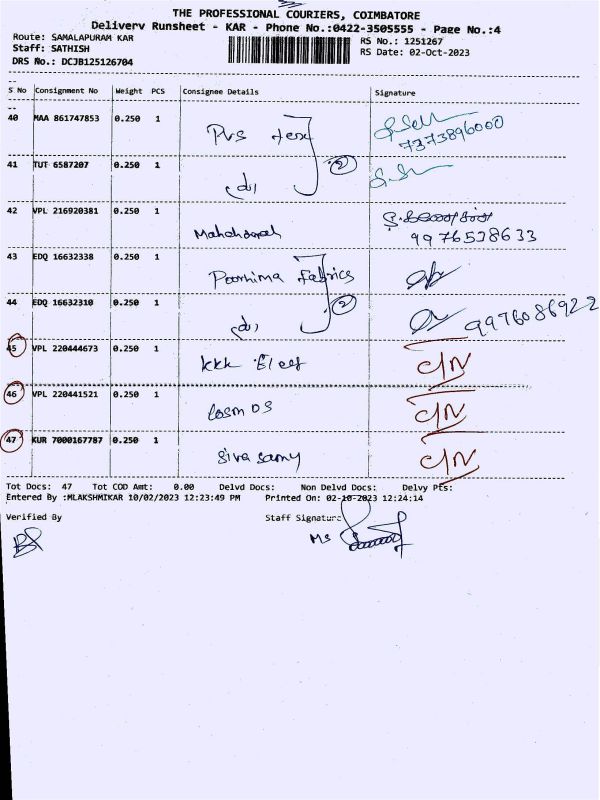 THE PROFESSIONAL COURIERS, COIMBATORE
Delivery Runsheet - KAR - Phone No.:0422-3505555 - Page No.:4
Route: SAMALAPURAM KAR
RS No.: 1251267
Staff: SATHISH
RS Date: 02-Oct-2023
DRS No.: DCJB125126704
S No Consignment No Weight PCS Consignee Details Signature
40 MAA 861747853 0.250 1 Pvs tex
7373896000
41 TUT 6587207 0.250 1 2
42 VPL 216920381 0.250 1
9976538633
43 EDQ 16632338 0.250 1 Poornima fabrics
44 EDQ 16632310 0.250 1 2 9976086922
45 VPL 220444673 0.250 1 kkk C/N
46 VPL 220441521 0.250 1 cosmos C/N
47 KUR 7000167787 0.250 1 siva samy C/N
Tot Docs: 47 Tot COD Amt: 0.00 Delvd Docs: Non Delvd Docs: Delvy Pts:
Entered By :MLAKSHMIKAR 10/02/2023 12:23:49 PM Printed On: 02-10-2023 12:24:14
Verified By Staff Signature
Ms